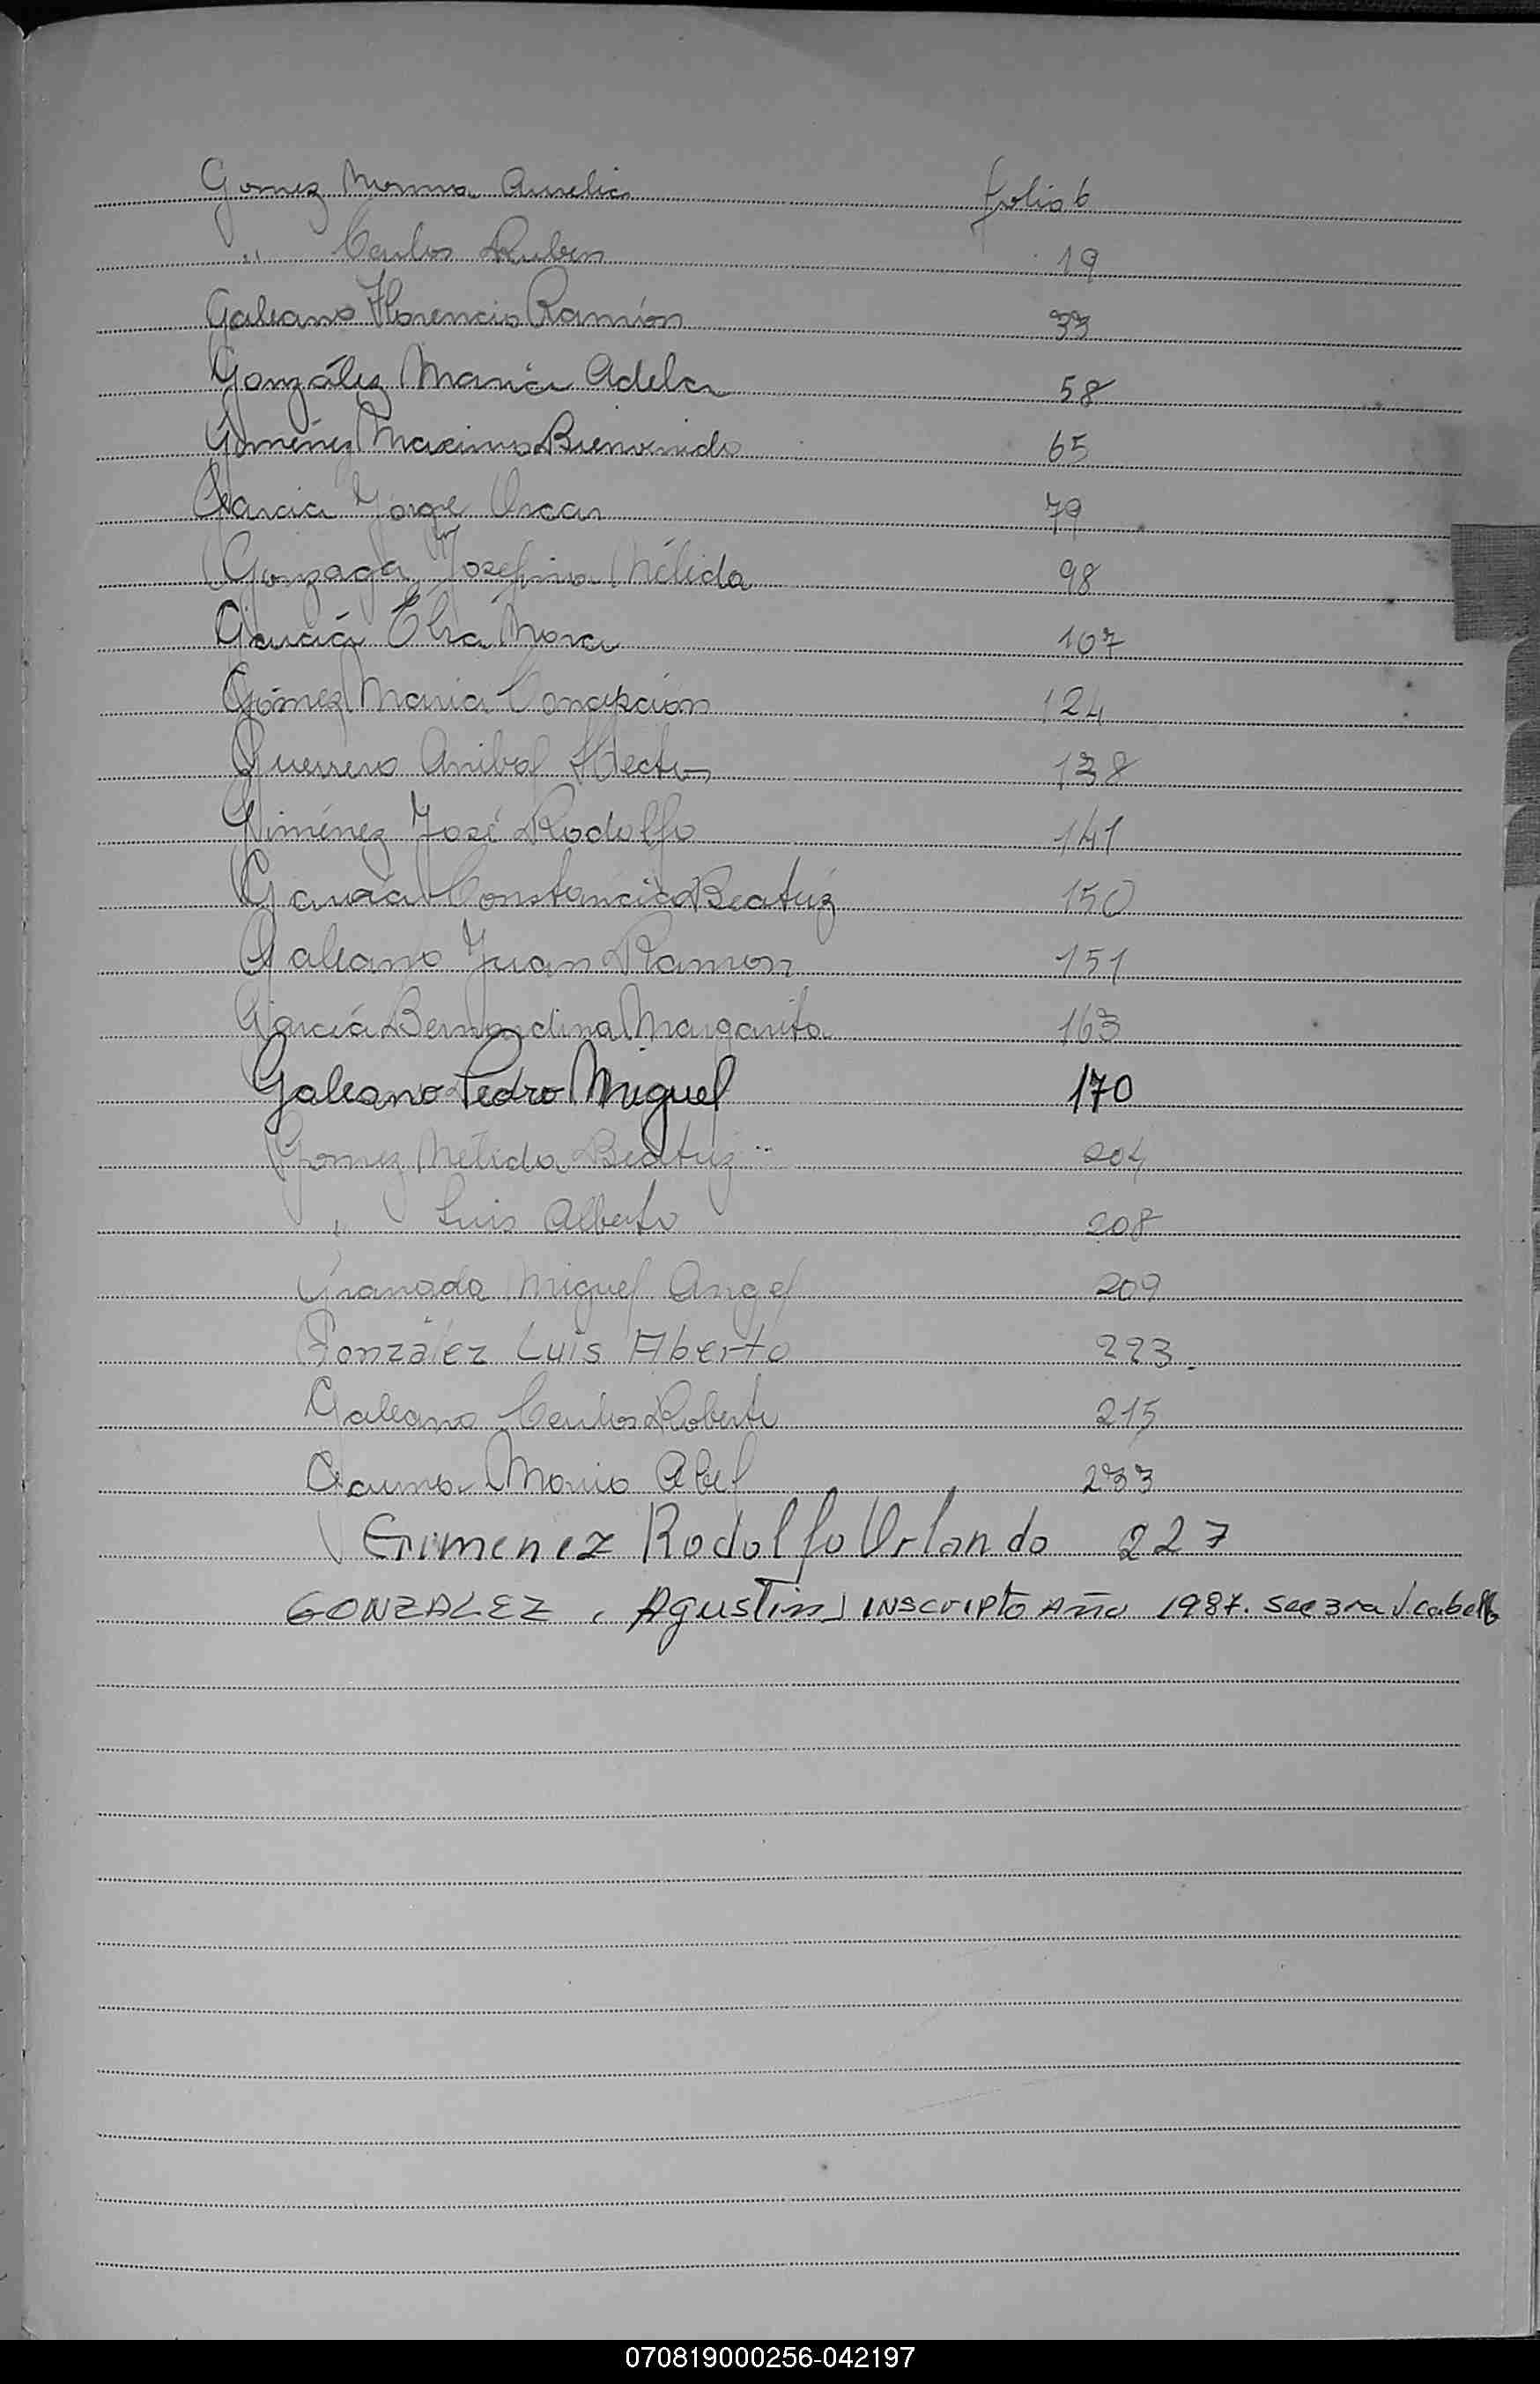 Gomez Norma Aurelia folio 6
" Carlos Ruben 19
Galeano Florencio Ramón 33
González María Adela 58
Giménez Maximo Bienvenido 65
Garcia Jorge Oscar 79
Gonzaga Josefina Nélida 98
García Elsa Nora 107
Gómez Maria Concepción 124
Guerrero Anibal Hector 138
Giménez José Rodolfo 141
García Constancia Beatriz 150
Galeano Juan Ramon 151
García Bernardina Margarita 163
Galeano Pedro Miguel 170
Gomez Nélida Beatriz 204
" Luis Alberto 208
Granada Miguel Angel 209
González Luis Alberto 223.
Galeano Carlos Roberto 215
Mario Abel 233
Gimenez Rodolfo Orlando 227
GONZALEZ, Agustin INSCRIPTO AÑO 1987. Sec 3ra
070819000256-042197